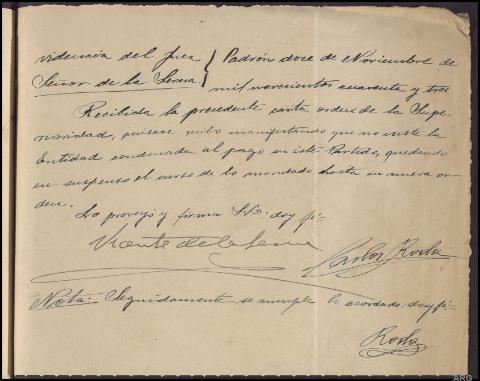 videncia del Juez
Señor de la Serna
Padrón doce de Noviembre de
mil novecientos cuarenta y tres
Recibida la precedente carta orden de la Supe-
rioridad, acúsese recibo manifestando que no existe la
Entidad condenada al pago en este Partido, quedando
en suspenso el curso de lo mandado hasta su nueva or-
den.
Lo proveyó y firma SSª. doy fé-
Vicente de la Serna
Carlos Rocha
Nota: Seguidamente se cumple lo acordado: doy fé-
Rocha
ARG